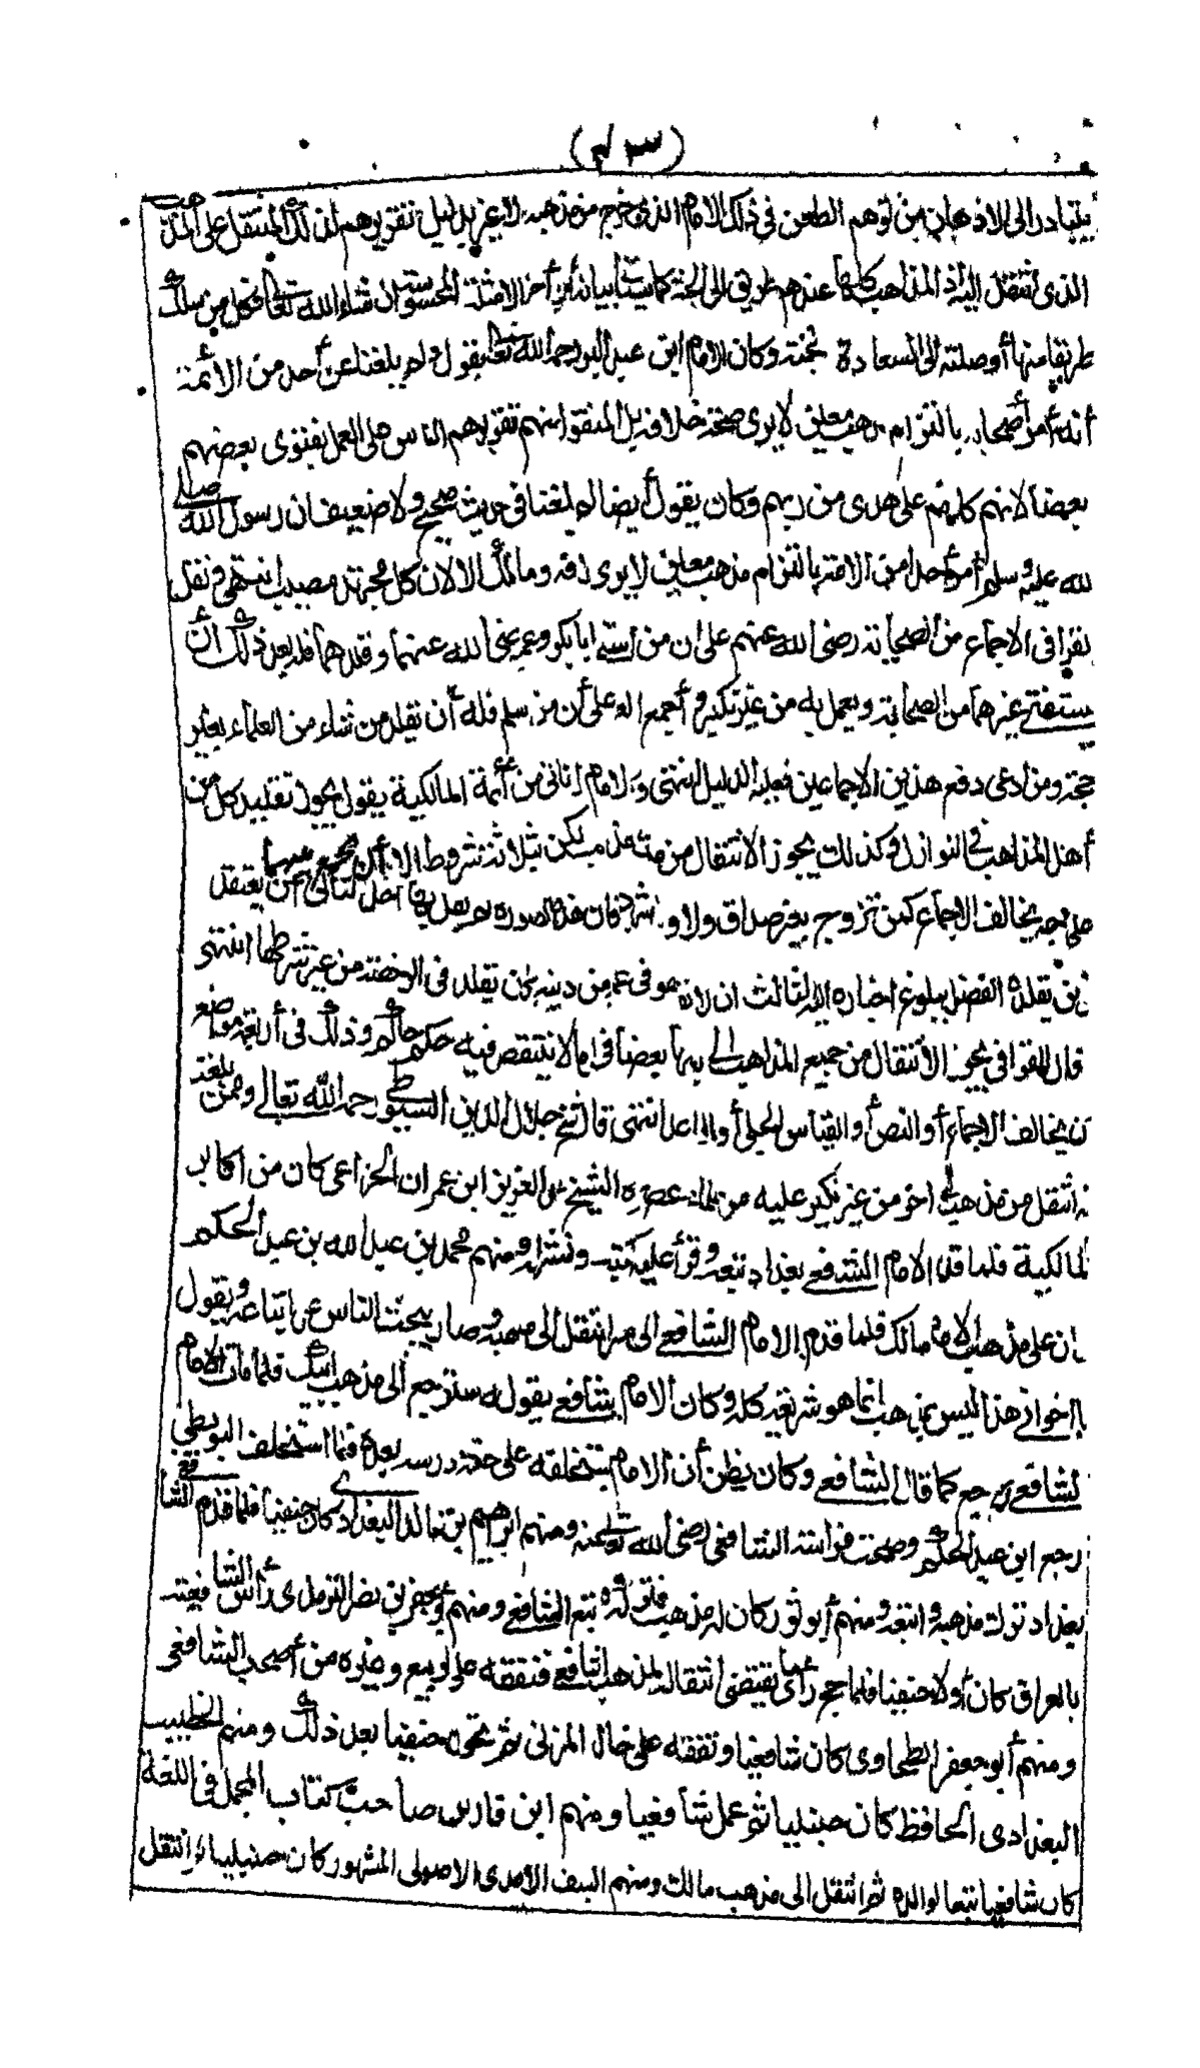 (٤٣)
يتبادر الى الاذهان من توهم الطعن فى ذلك الامام الذى خرج من مذهبه لا غير بدليل تقريرهم لذلك المنتقل على المذهب
الذى انتقل اليه اذ المذاهب كلها عندهم طريق الى الجنة كما سيأتى بيانه أواخر الامثلة المحسوسة ان شاء الله تعالى فكل من سلك
طريقا منها أوصلته الى السعادة والجنة وكان الامام ابن عبد البر رحمه الله تعالى يقول ولم يبلغنا عن أحد من الأئمة
أنه أمر أصحابه بالتزام مذهب معين لا يرى صحة خلافه بل المنقول عنهم تقريرهم الناس على العمل بفتوى بعضهم
بعضا لانهم كلهم على هدى من ربهم وكان يقول أيضا لم يبلغنا فى حديث صحيح ولا ضعيف ان رسول الله صلى
لله عليه وسلم أمر أحدا من الامة بالتزام مذهب معين لا يرى خلافه وما ذلك الا لان كل مجتهد مصيب انتهى ونقل
لقرافى الاجماع من الصحابة رضى الله عنهم على ان من استفتى ابا بكر وعمر رضى الله عنهما وقلدهما فله بعد ذلك أن
يستفتى غيرهما من الصحابة ويعمل به من غير نكير وأجمع العلماء على أن من أسلم فله أن يقلد من شاء من العلماء بغير
حجة ومن ادعى دفع هذين الاجماعين فعليه الدليل انتهى وكان الامام الزناتى من أئمة المالكية يقول يجوز تقليد كل من
أهل المذاهب فى النوازل وكذلك يجوز الانتقال من مذهب الى مذهب لكن بثلاثة شروط الاول أن لا يجمع بينهما
على وجه يخالف الاجماع كمن تزوج بغير صداق ولا ولى ولا شهود فان هذه الصورة لم يقل بها أحد الثانى أن يعتقد
فيمن يقلده الفضل ببلوغ اخباره اليه الثالث ان لا يقلد وهو فى عماية من دينه كأن يقلد فى الرخصة من غير شرطها انتهى
قال القرافى يجوز الانتقال من جميع المذاهب الى بعضها بعضا فى كل ما لا ينتقض فيه حكم حاكم وذلك فى أربعة مواضع
أن يخالف الاجماع أو النص أو القياس الجلى أو القواعد انتهى قال الشيخ جلال الدين السيوطى رحمه الله تعالى وممن بلغنا
نه انتقل من مذهب الى آخر من غير نكير عليه من علماء عصره الشيخ عبد العزيز ابن عمران الخزاعى كان من اكابر
لمالكية فلما قدم الامام الشافعى بغداد تبعه وقرأ عليه كتبه ونشر علمه ومنهم محمد بن عبد الله بن عبد الحكم
كان على مذهب الامام مالك فلما قدم الامام الشافعى الى مصر انتقل الى مذهبه وصار يحث الناس على اتباعه ويقول
يا اخوانى هذا ليس بمذهب انما هو شريعة كله وكان الامام الشافعى يقول له سترجع الى مذهب أبيك فلما مات الامام
لشافعى رجع كما قال الشافعى وكان يظن أن الامام يستخلفه على حلقة درسه بعده فلما استخلف البويطى
رجع ابن عبد الحكم وصحت فراسة الشافعى رضى الله تعالى عنه ومنهم ابراهيم بن خالد البغدادى كان حنفيا فلما قدم الشافعى
بغداد ترك مذهبه واتبعه ومنهم أبو ثور كان له مذهب فتركه واتبع الشافعى ومنهم أبو جعفر بن نصر الترمذى رأس الشافعية
بالعراق كان أولا حنفيا فلما حج رأى ما يقتضى انتقاله لمذهب الشافعى فتفقه على الربيع وغيره من أصحاب الشافعى
ومنهم أبو جعفر الطحاوى كان شافعيا وتفقه على خاله المزنى ثم تحول حنفيا بعد ذلك ومنهم الخطيب
البغدادى الحافظ كان حنبليا ثم عمل شافعيا ومنهم ابن فارس صاحب كتاب المجمل فى اللغة
كان شافعيا تبعا لوالده ثم انتقل الى مذهب مالك ومنهم السيف الآمدى الاصولى المشهور كان حنبليا ثم انتقل